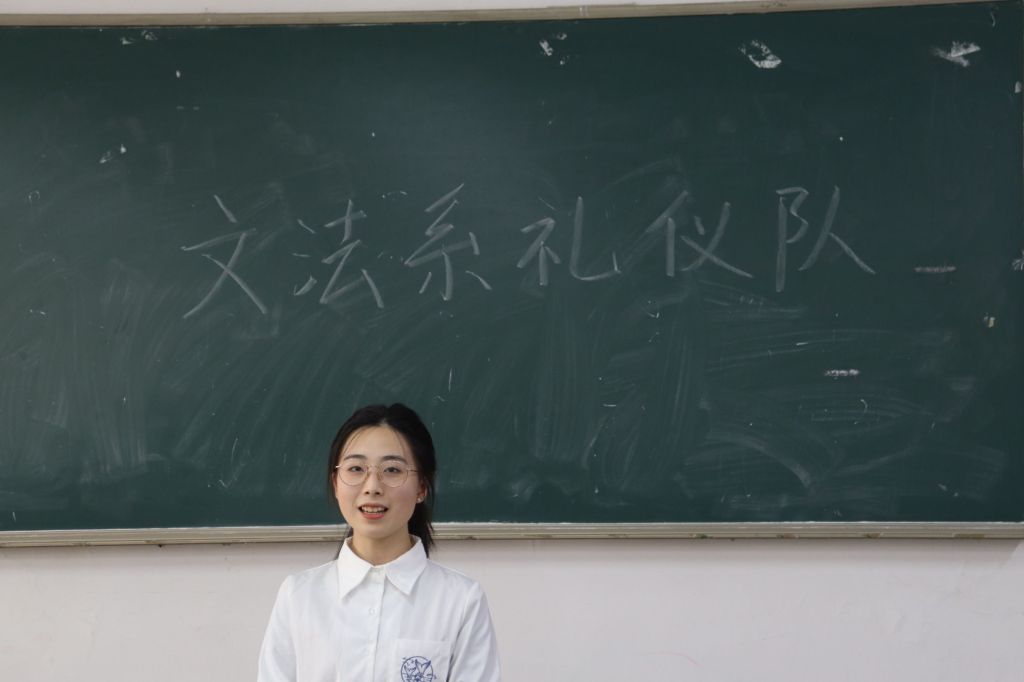 文法系礼仪队